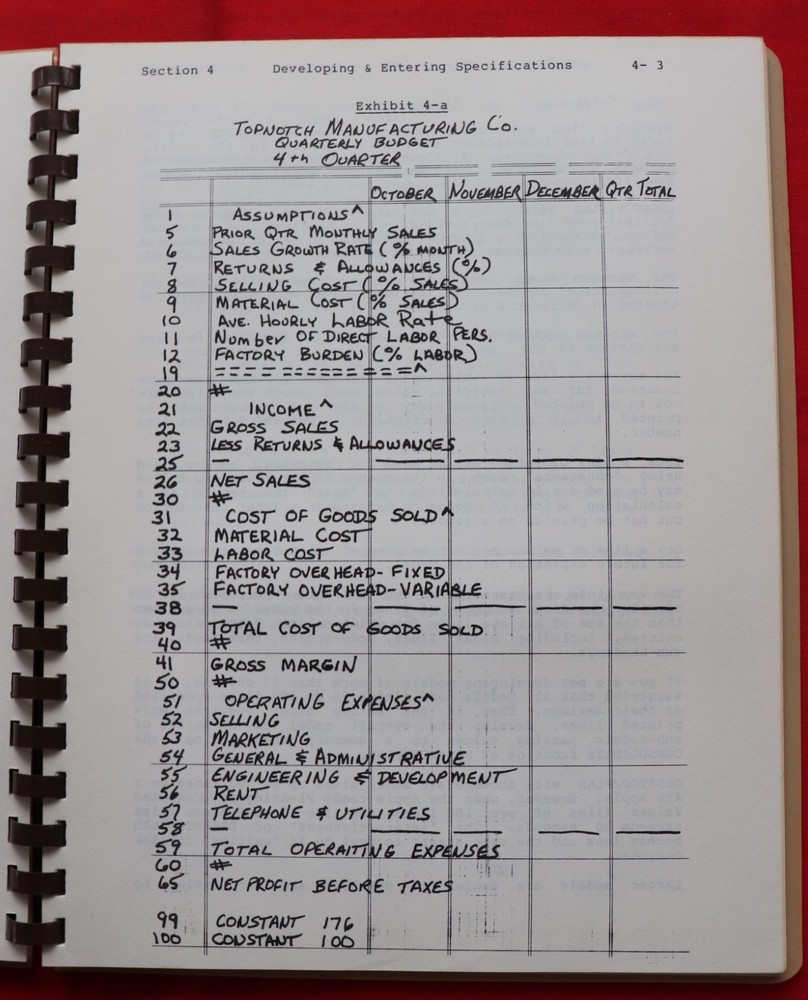 Section 4 Developing & Entering Specifications 4- 3
Exhibit 4-a
TOPNOTCH MANUFACTURING CO.
QUARTERLY BUDGET
4th QUARTER
OCTOBER NOVEMBER DECEMBER QTR TOTAL
1 ASSUMPTIONS^
5 PRIOR QTR MONTHLY SALES
6 SALES GROWTH RATE (% MONTH)
7 RETURNS & ALLOWANCES (%)
8 SELLING COST (% SALES)
9 MATERIAL COST (% SALES)
10 AVE. HOURLY LABOR Rate
11 Number OF DIRECT LABOR PERS.
12 FACTORY BURDEN (% LABOR)
19 = = = = = = = = = = = = =^
20 #
21 INCOME^
22 GROSS SALES
23 LESS RETURNS & ALLOWANCES
25 —
26 NET SALES
30 #
31 COST OF GOODS SOLD^
32 MATERIAL COST
33 LABOR COST
34 FACTORY OVERHEAD- FIXED
35 FACTORY OVERHEAD-VARIABLE
38 —
39 TOTAL COST OF GOODS SOLD
40 #
41 GROSS MARGIN
50 #
51 OPERATING EXPENSES^
52 SELLING
53 MARKETING
54 GENERAL & ADMINISTRATIVE
55 ENGINEERING & DEVELOPMENT
56 RENT
57 TELEPHONE & UTILITIES
58 —
59 TOTAL OPERAITING EXPENSES
60 #
65 NET PROFIT BEFORE TAXES
99 CONSTANT 176
100 CONSTANT 100